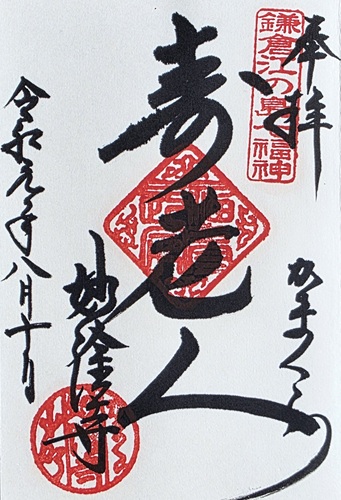 奉拝
鎌倉江の島七福神
かまくら
寿老人
妙隆寺
令和元年八月十日